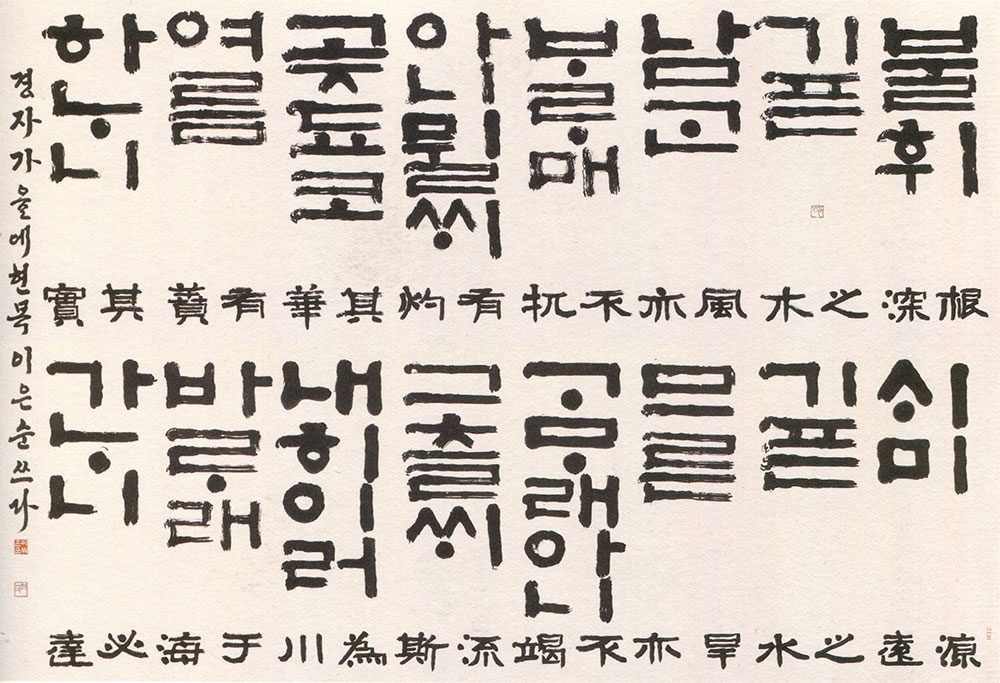 불휘
기픈
남ᄀᆞᆫ
ᄇᆞᄅᆞ매
아니뮐ᄊᆡ
곶됴코
여름
하ᄂᆞ니
根深之木風亦不扤有灼其華有蕡其實
ᄉᆡ미
기픈
므른
ᄀᆞᄆᆞ래아니
그츨ᄊᆡ
내히이러
바ᄅᆞ래
가ᄂᆞ니
源遠之水旱亦不竭流斯為川于海必達
경자가을에현목 이은순쓰다